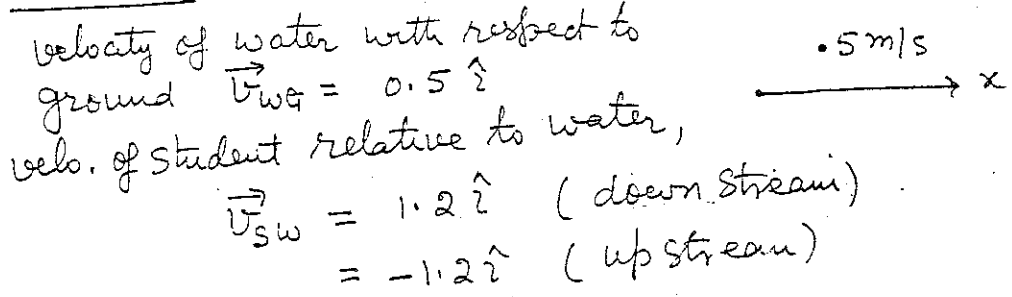 velocity of water with respect to
.5 m/s
ground v⃗WG = 0.5 î
x
velo. of student relative to water,
v⃗SW = 1.2 î ( down stream) .
= -1.2 î ( up stream)